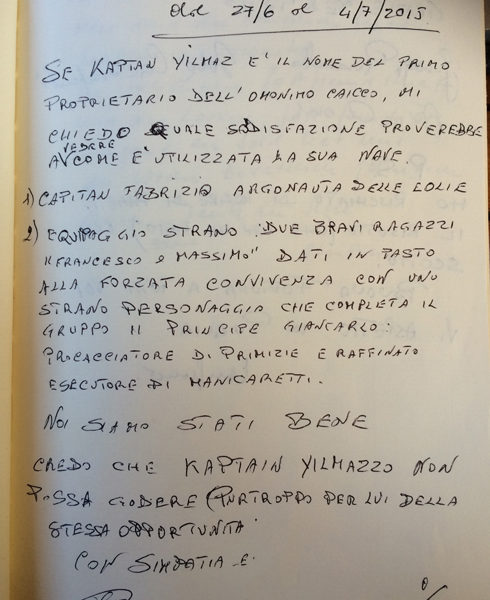 dal 27/6 al 4/7/2015.
SE KAPTAN YILMAZ E' IL NOME DEL PRIMO
PROPRIETARIO DELL'OMONIMO CAICCO, MI
CHIEDO QUALE SODISFAZIONE PROVEREBBE
VEDERE
A COME E' UTILIZZATA LA SUA NAVE.
1) CAPITAN FABRIZIO ARGONAUTA DELLE EOLIE
2) EQUIPAGGIO STRANO DUE BRAVI RAGAZZI
"FRANCESCO e MASSIMO" DATI IN PASTO
ALLA FORZATA CONVIVENZA CON UNO
STRANO PERSONAGGIO CHE COMPLETA IL
GRUPPO IL PRINCIPE GIANCARLO:
PROCACCIATORE DI PRIMIZIE E RAFFINATO
ESECUTORE DI MANICARETTI.
NOI SIAMO STATI BENE
CREDO CHE KAPTAIN YILMAZZO NON
POSSA GODERE (PURTROPPO PER LUI DELLA
STESSA OPPORTUNITA'
CON SIMPATIA E